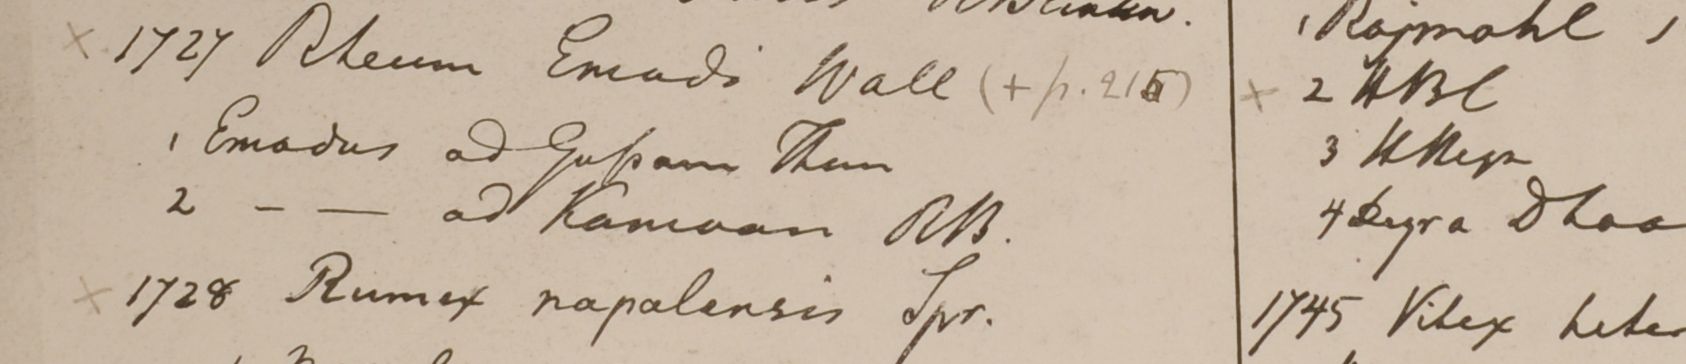 × 1727 Rheum Emodi Wall (+ p. 215)
1 Emodus ad Gossam Than
2 - — ad Kamoan RB.
× 1728 Rumex napalensis Spr.
1 Rajmahl
× 2 HBC
3 HHegn
4 Deyra Dhoo
1745 Vitex heter